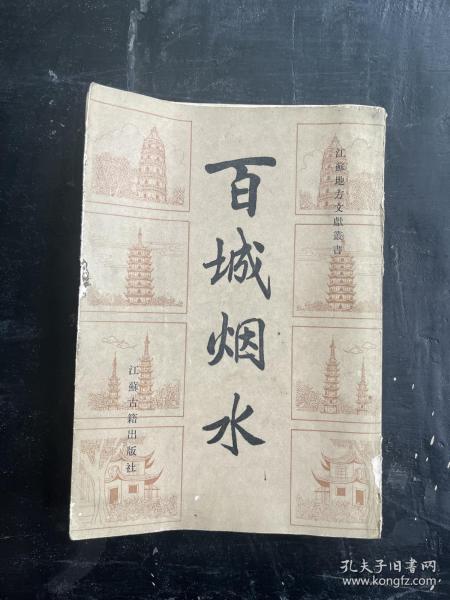 江蘇地方文獻叢書
百城烟水
江蘇古籍出版社
孔夫子旧书网
www.kongfz.com